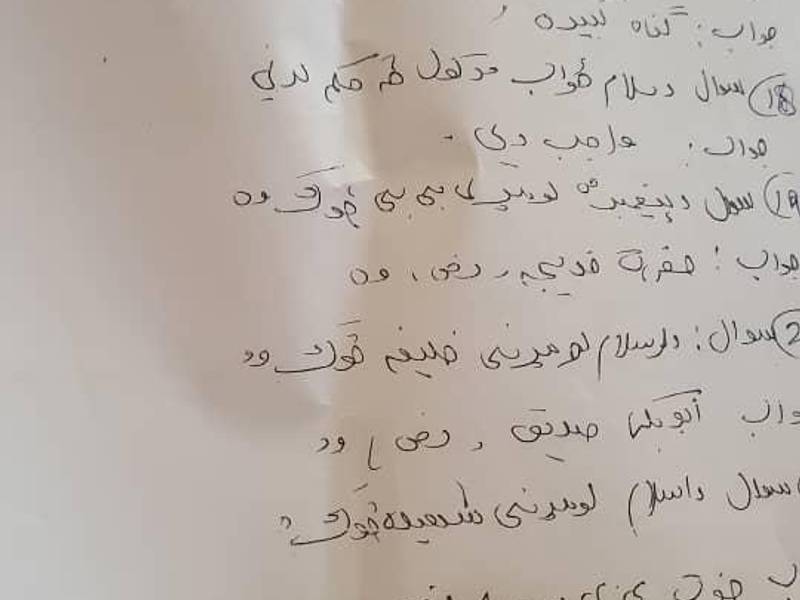 جواب: گناه کبیره
(18) سوال د سلام ځواب ورکول څه حکم لري
جواب: واجب دي.
(19) سوال د پیغمبرﷺ لومړی بی بی څوک وه
جواب: حضرت خدیجه (رض) وه
(2 سوال: د اسلام لومړنی خلیفه څوک وو
واب ابوبکر صدیق (رض) وو
سوال د اسلام لومړنی شهیده څوک